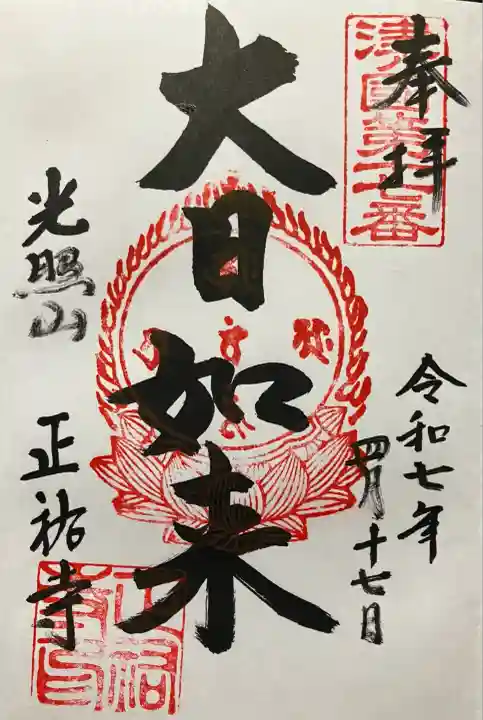 奉拝
令和七年
四月十七日
大日如来
光照山
正祐寺